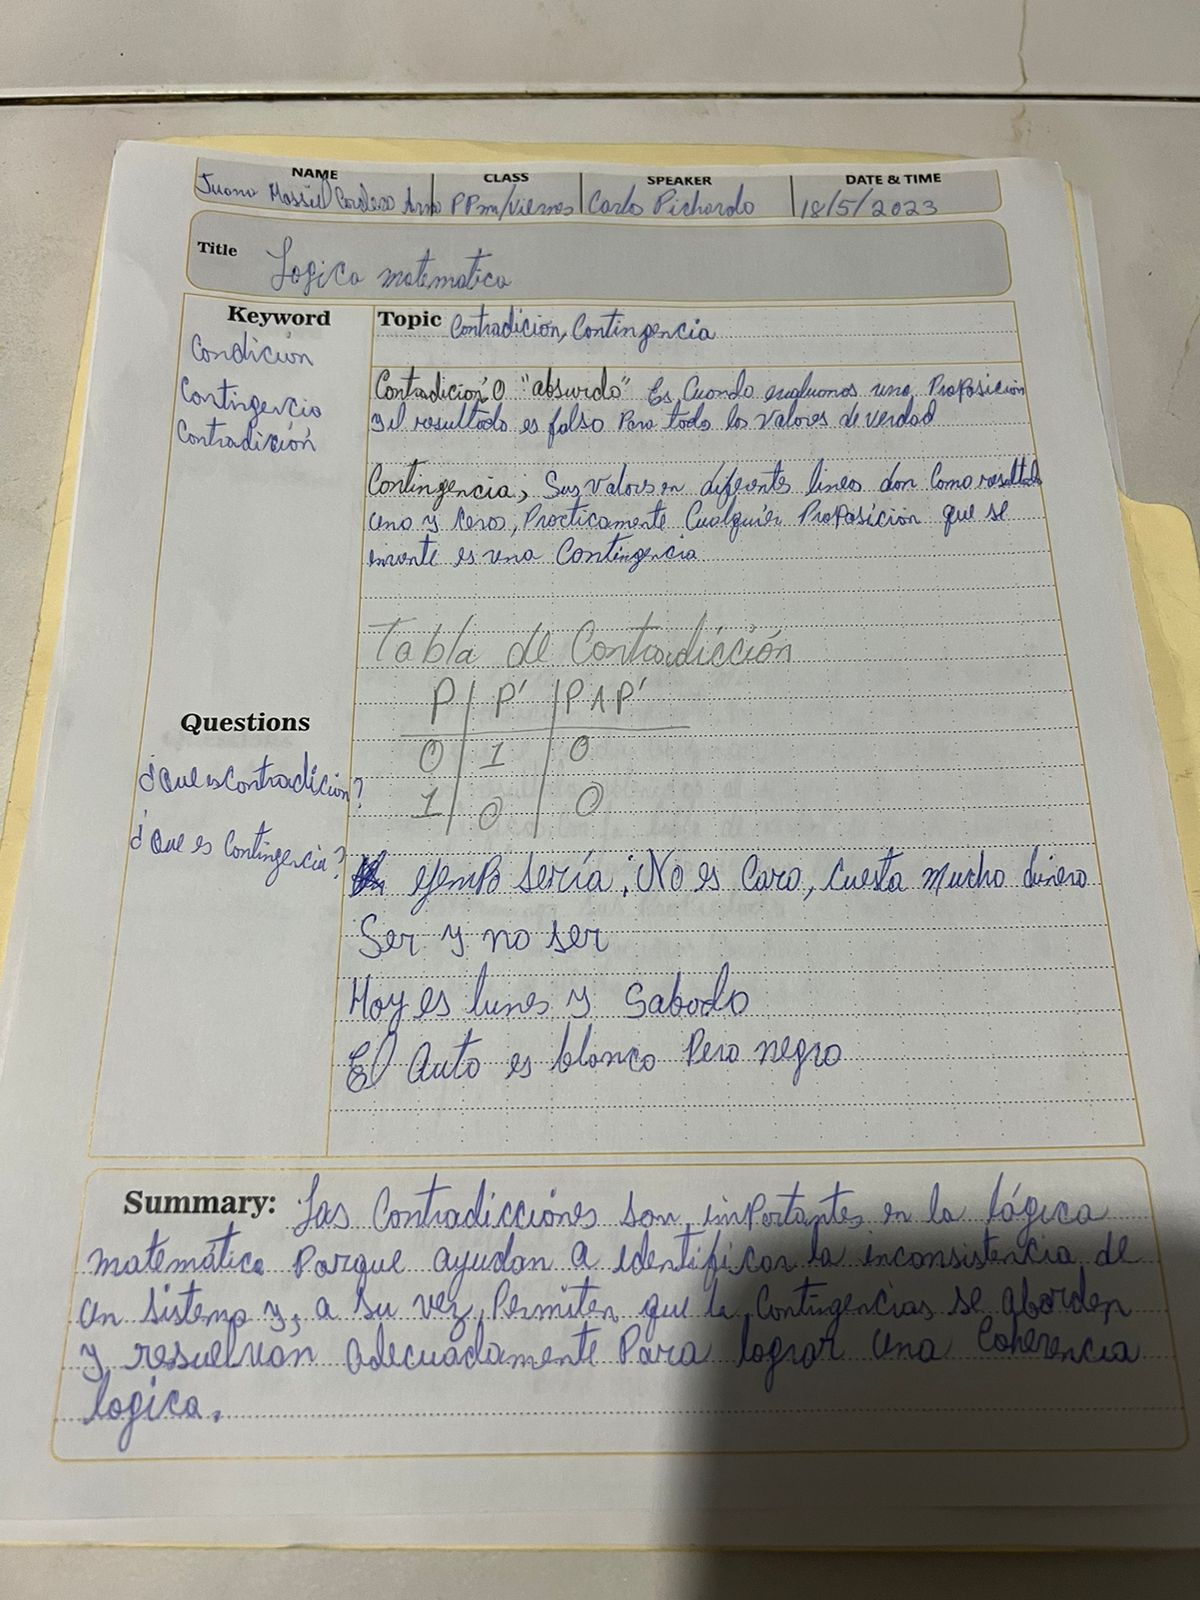 NAME CLASS SPEAKER DATE & TIME
Juana Massiel Cordero PPm/Viernes Carlo Pichardo 18/5/2023
Title Logica matematica
Keyword
Condición
Contingencia
Contradición
Topic Contradicion, Contingencia
Contradicion; O "absurdo" Es Cuando evaluamos una Proposicion
y el resultado es falso Para todo los valores de verdad
Contingencia; Sus valors en diferents lineas dan Como resultado
uno y ceros, Practicamente Cualquier Proposición que se
invente es una Contingencia
Tabla de Contradicción
P | P' | P ∧ P'
0 | 1 | 0
1 | 0 | 0
Questions
¿Que es contradicion?
¿Que es Contingencia?
ejemplo sería: No es Caro, Cuesta mucho dinero
Ser y no ser
Hoy es lunes y Sabado
El Auto es blanco Pero negro
Summary: Las Contradicciónes son importantes en la lógica
matemática Porque ayudan a identificar la inconsistencia de
un sistema y, a su vez, Permiten que la Contingencias se aborden
y resuelvan adecuadamente Para lograr una Coherencia
logica.